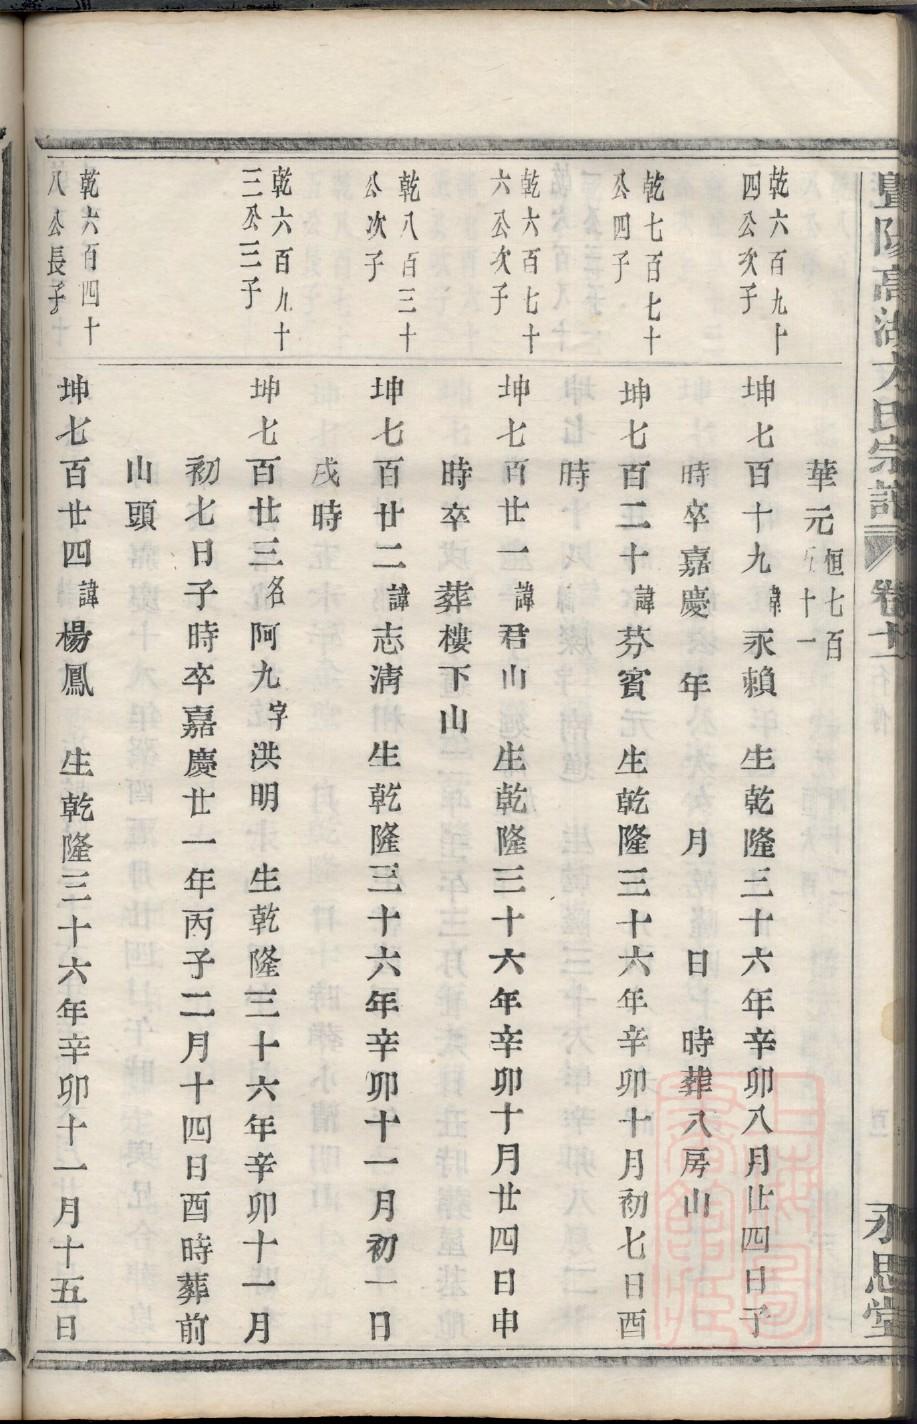 暨陽高湖方氏宗譜 卷十一
永思堂
華元恒七百五十一
乾六百九十四公次子
坤七百十九諱永賴 生乾隆三十六年辛卯八月廿四日子
時卒嘉慶 年 月 日 時葬八房山
乾七百七十公四子
坤七百二十諱芬賓 生乾隆三十六年辛卯十月初七日酉
時
乾六百七十六公次子
坤七百廿一諱君山 生乾隆三十六年辛卯十月廿四日申
時卒葬樓下山
乾八百三十公次子
坤七百廿二諱志淸 生乾隆三十六年辛卯十一月初一日
戌時
乾六百九十三公三子
坤七百廿三名阿九字洪明 生乾隆三十六年辛卯十一月
初七日子時卒嘉慶廿一年丙子二月十四日酉時葬前
山頭
乾六百四十八公長子
坤七百廿四諱楊鳳 生乾隆三十六年辛卯十一月十五日